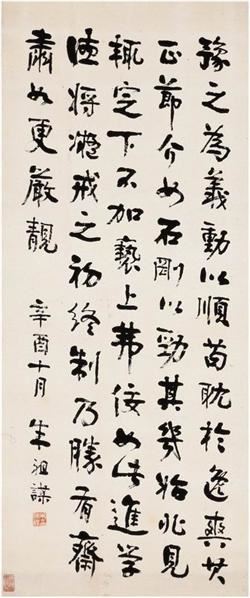 豫之為義動以順苟耽於逸爽其
正節介如石剛以勁其幾始兆見
輒定下不加褻上弗佞如此進学
德將凝戒之初終制乃勝有齋
肅如更嚴靚 辛酉十月 朱祖謀